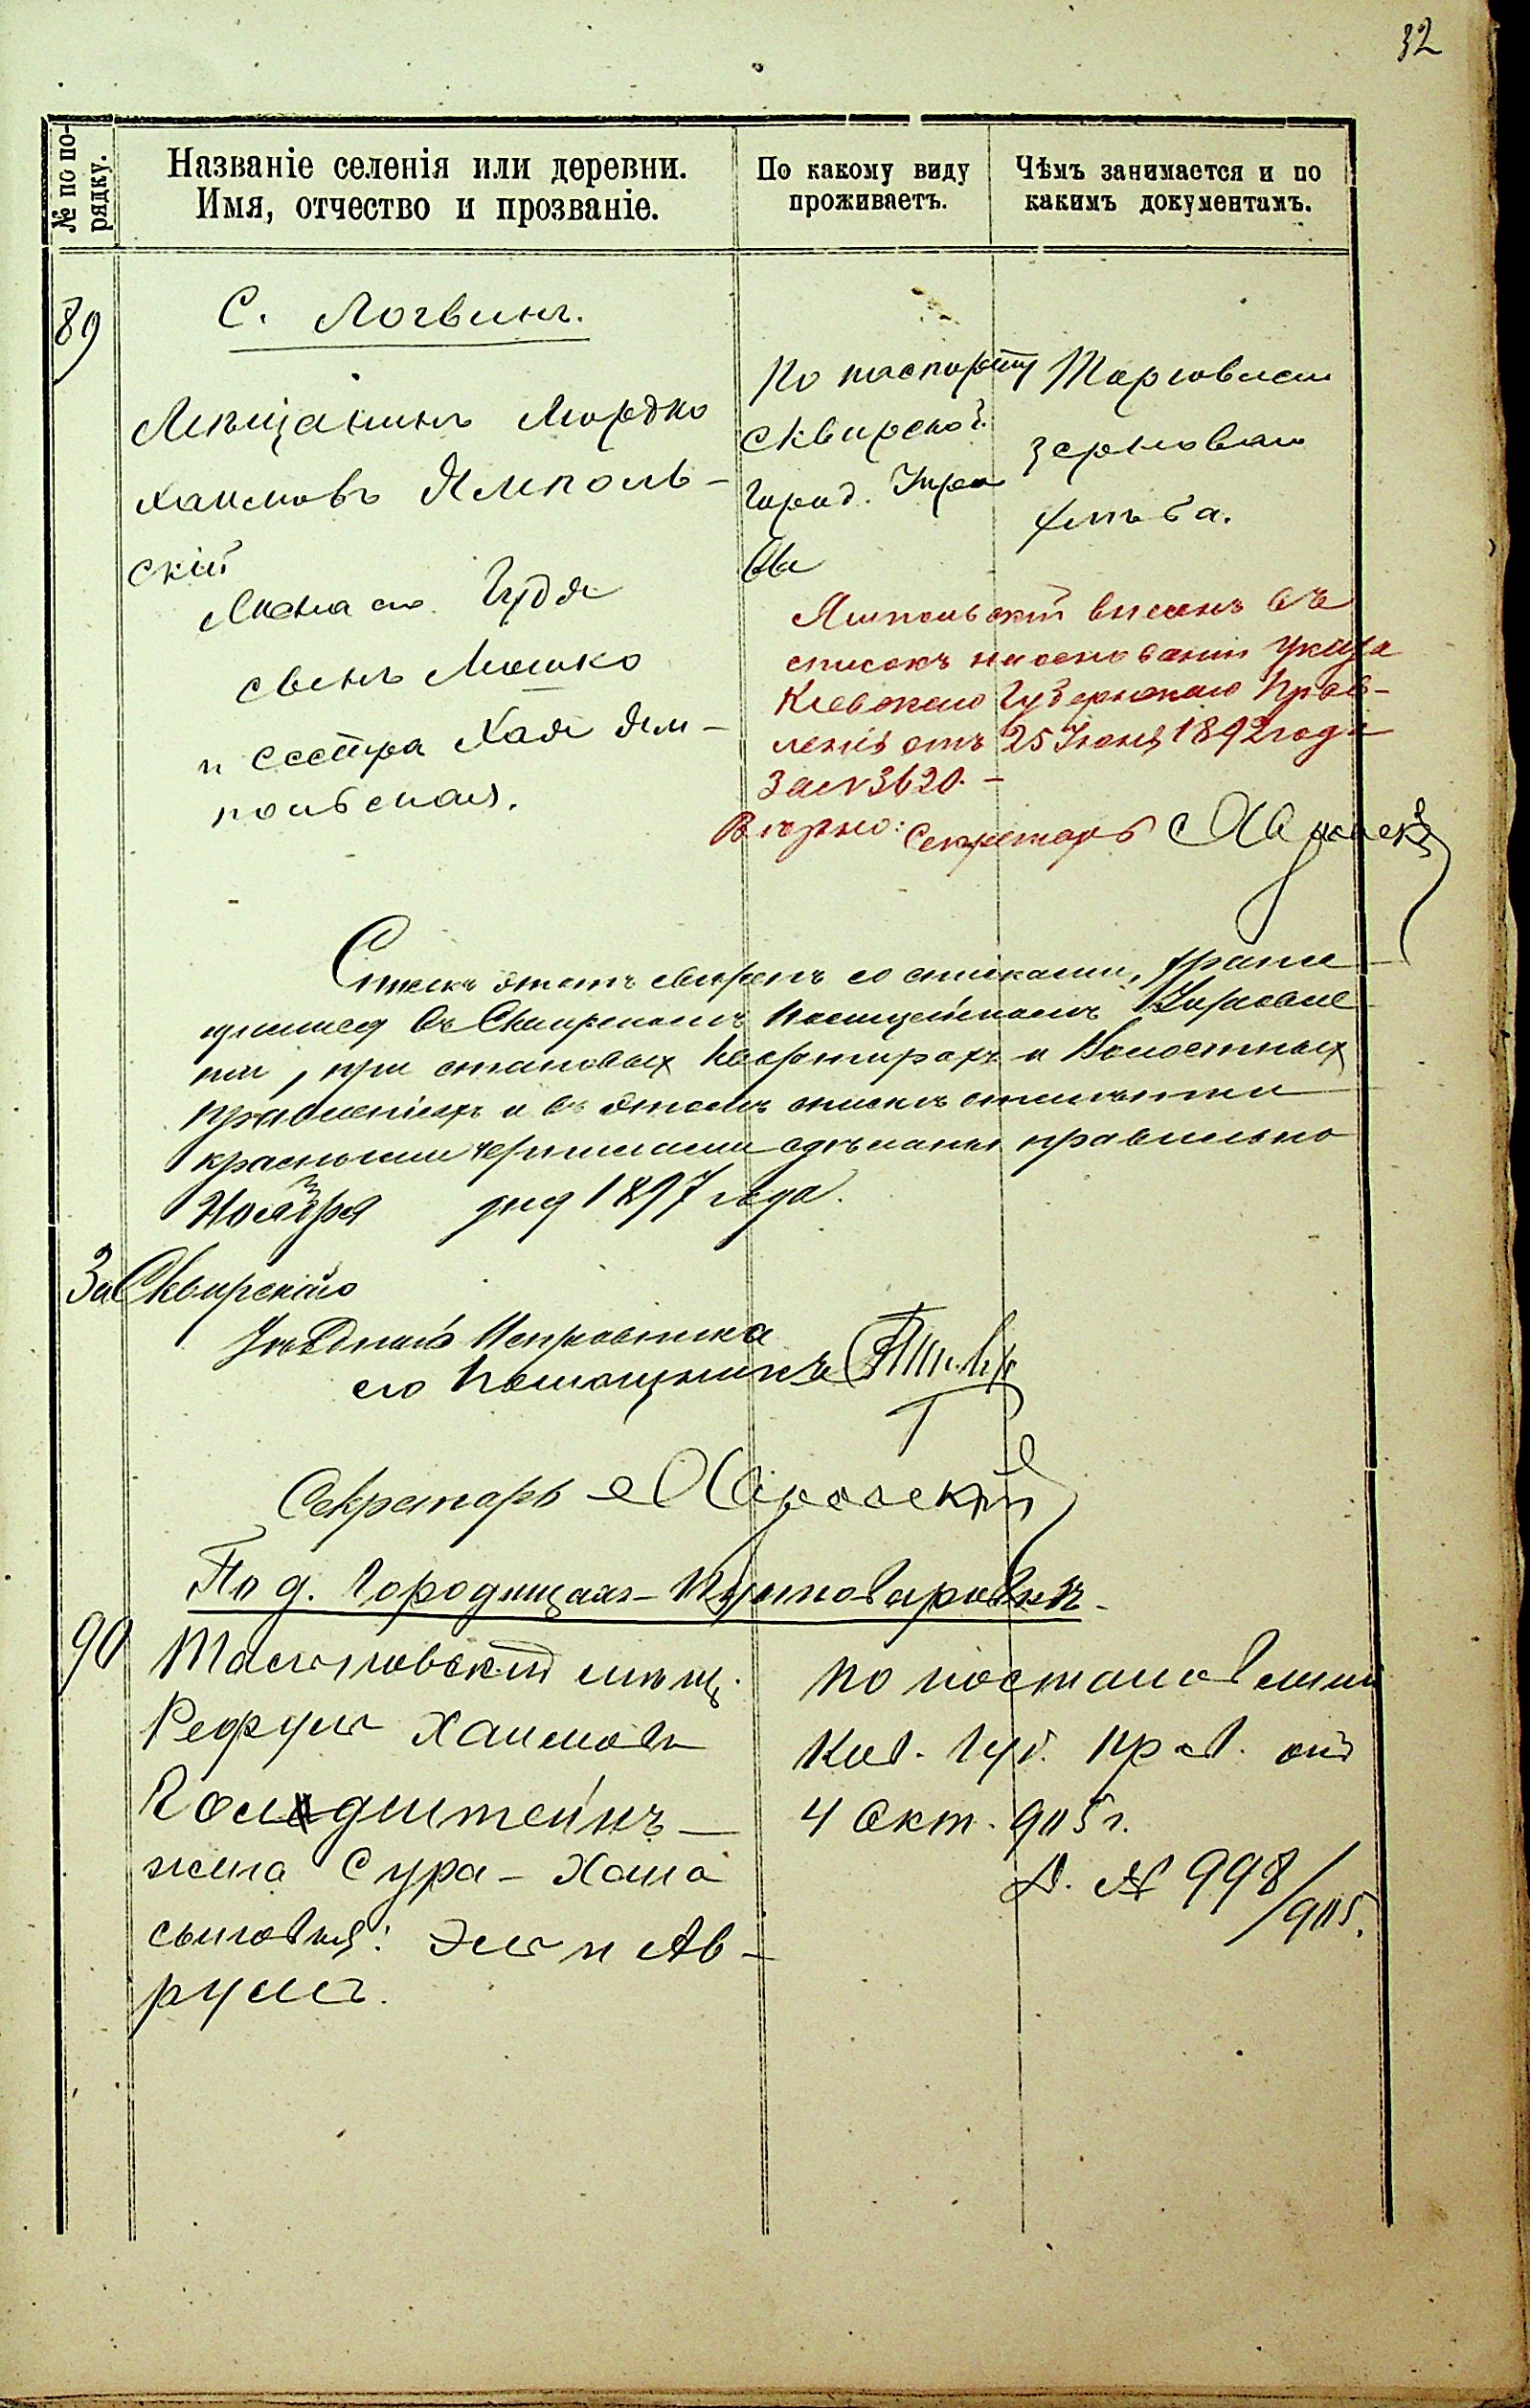 32
№ по по-
рядку.
Названіе селенія или деревни.
Имя, отчество и прозваніе.
По какому виду
проживаетъ.
Чѣмъ занимается и по
какимъ документамъ.
89
С. Логвинъ.
Мѣщанинъ Мордко
Хаимовъ Ямполь-
скій
Жена его Гудя
сынъ Мошко
и сестра Хая Ям-
польская.
По паспорту
Сквирской
Город. Упра
вы
Торговлею
зерноваго
хлѣба.
Ямпольскій внесенъ въ
списокъ на основаніи указа
Кіевскаго Губернскаго Прав-
ленія отъ 25 Іюня 1892 года
за № 3620. -
Вѣрно: Секретарь
Списокъ этотъ свѣренъ со списками, храня-
щимися въ Сквирскомъ Полицейскомъ Управле-
ніи, при становыхъ квартирахъ и Волостныхъ
Правленіяхъ и въ этомъ спискѣ отмѣтки
красными чернилами сдѣланы правильно
Ноября дня 1897 года.
За Сквирскаго
Уѣзднаго Исправника
его Помощникъ
Секретарь
По д. Городищах-Пустоваровкѣ-
90
мѣщ.
Рефулъ Хаимовъ
Голдштейнъ-
жена Сура-Хана
сыновья: Эль и Ав-
румъ.
по постановленію
Кіев. Губ. Прав. отъ
4 Окт. 905 г.
Д. № 998/905.